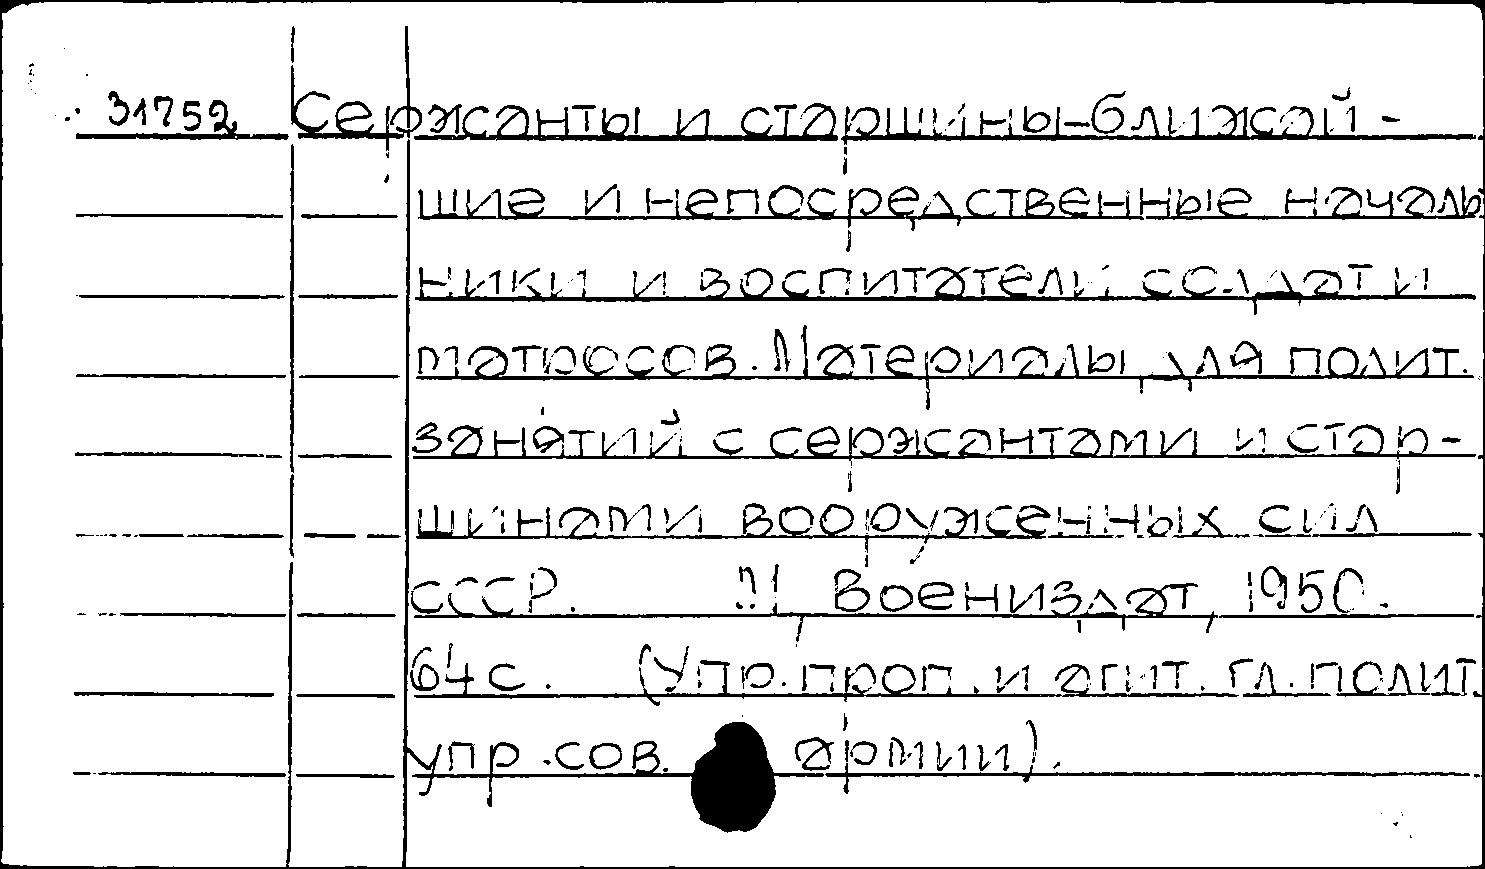 31752 Сержанты и старшины-ближай-
шие и непосредственные началь
ники и воспитатели солдат и
матросов. Материалы для полит.
занятий с сержантами и стар-
шинами вооруженных сил
СССР. М, Воениздат, 1950.
64 с. (Упр. проп. и агит. гл. полит.
упр. сов. армии).